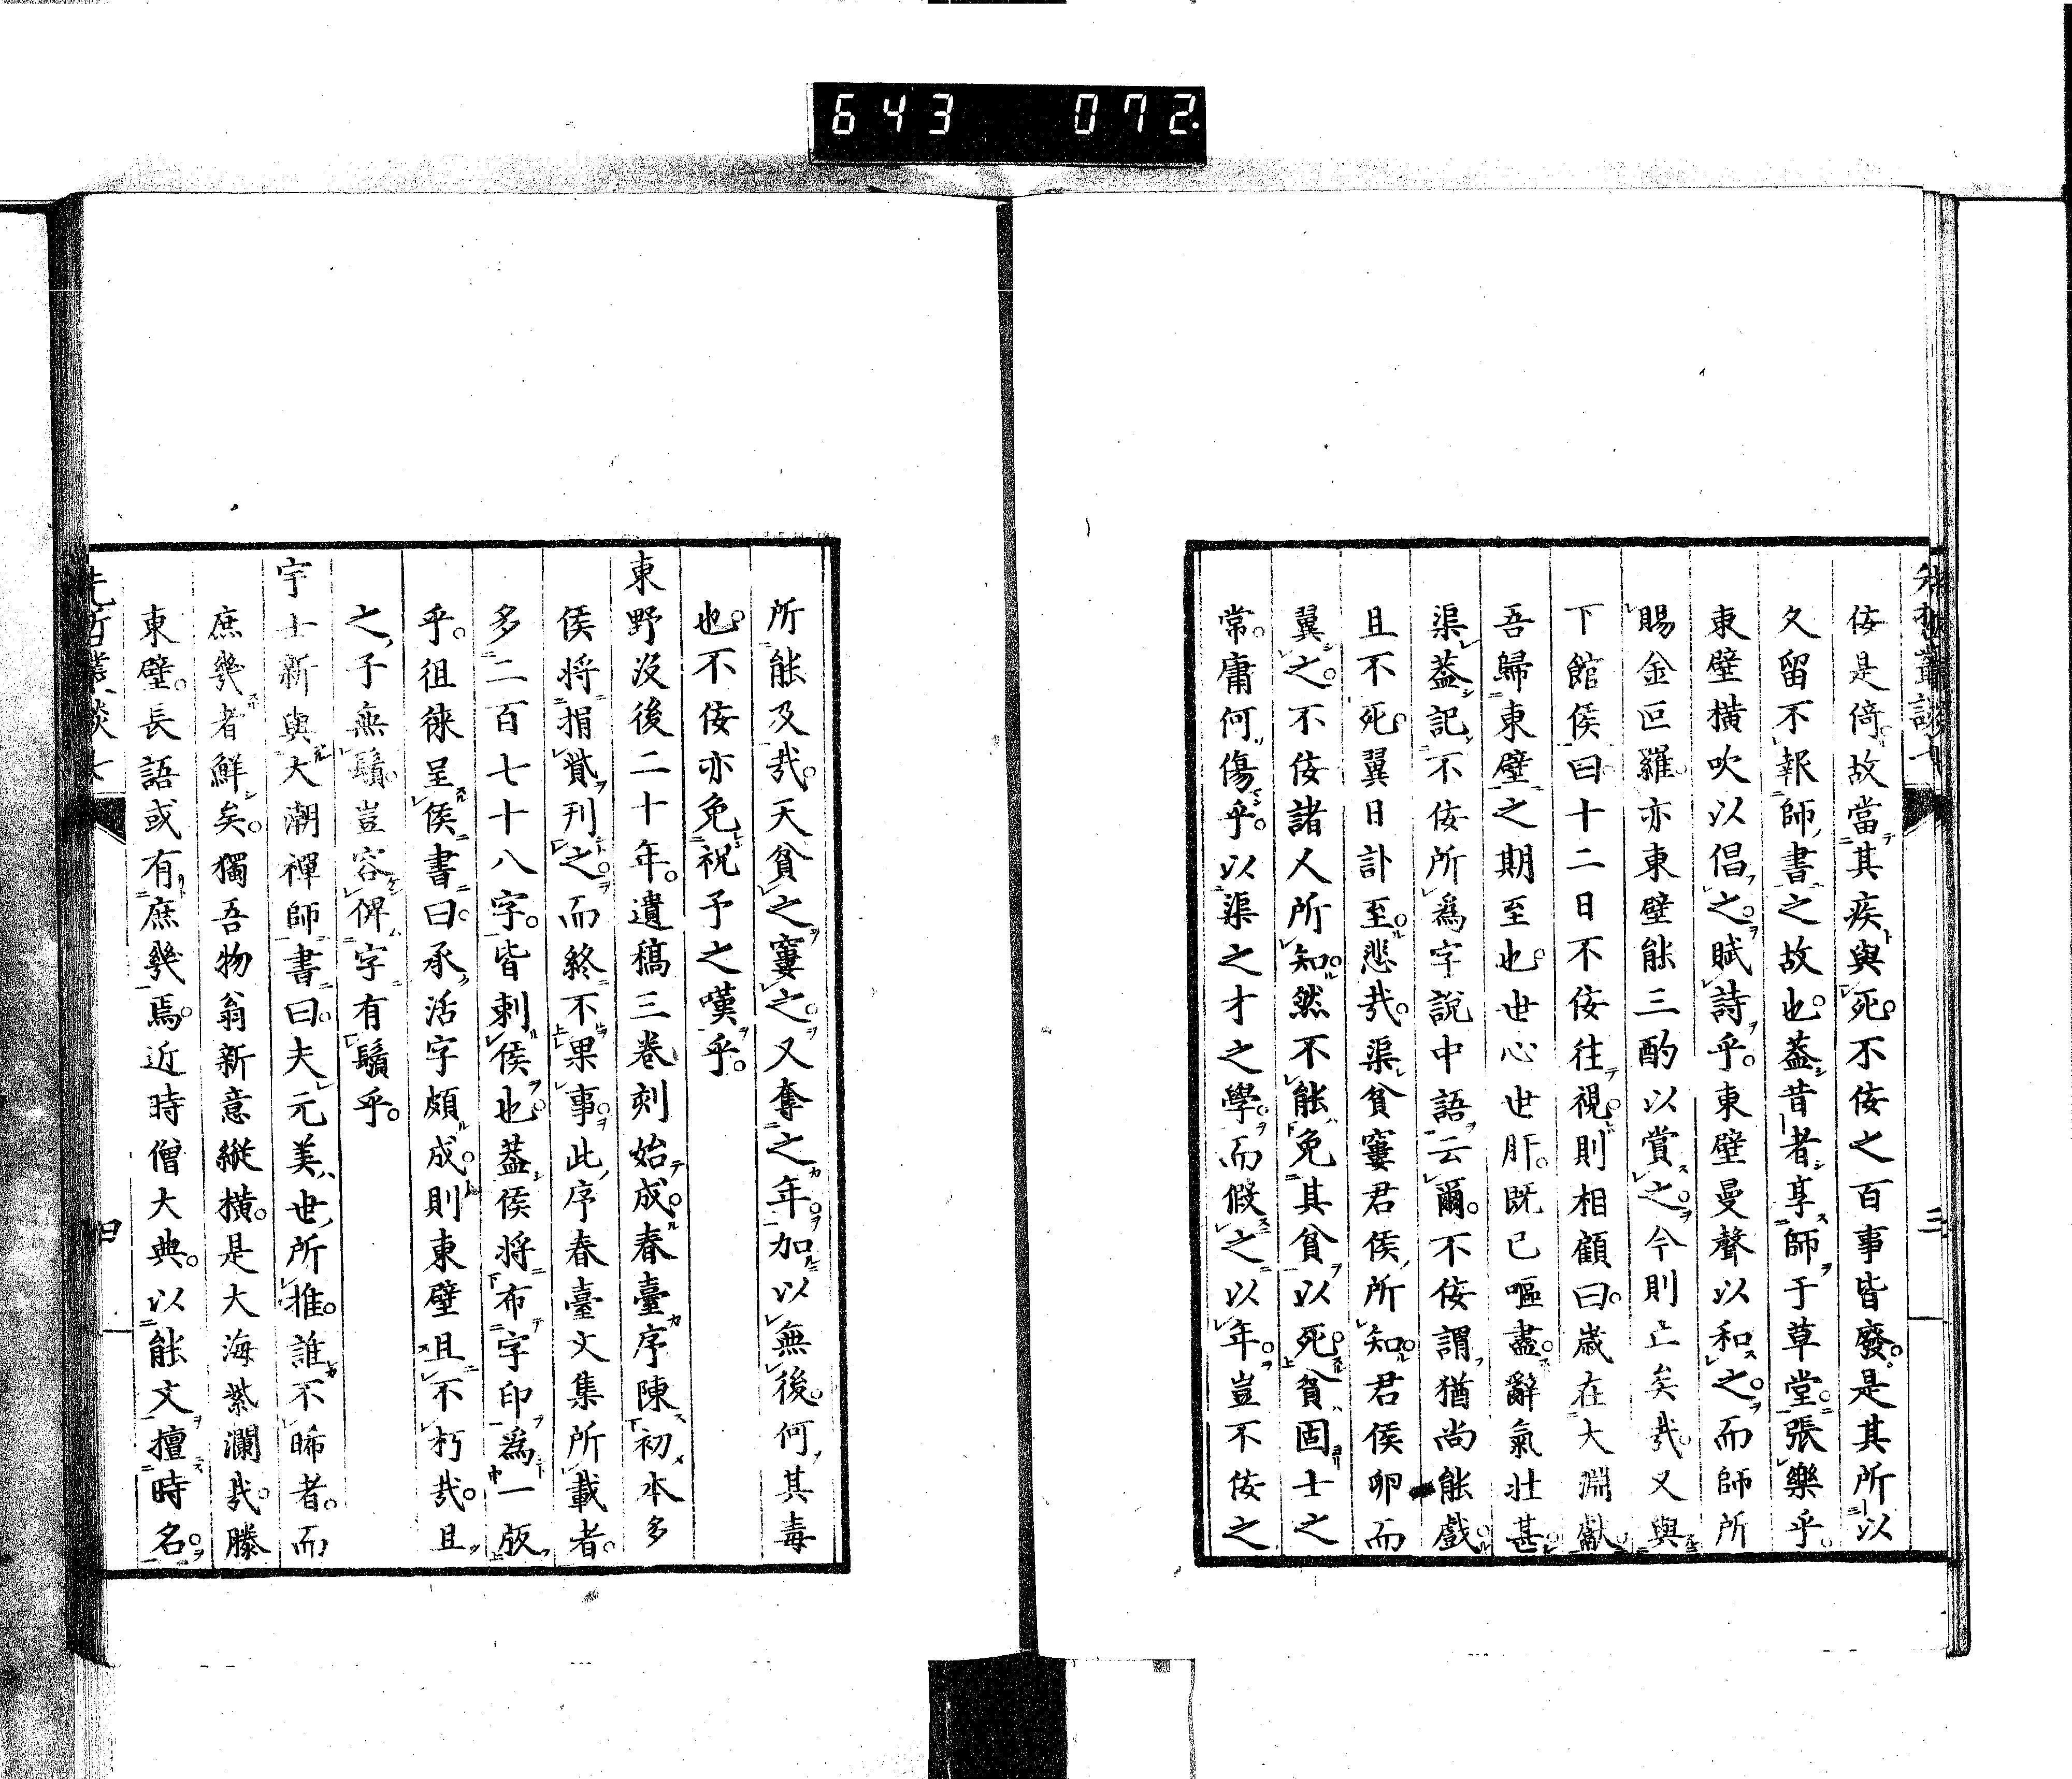 643 072.
先哲叢談
三
佞是倚故當其疾與死不佞之百事皆廢是其所以
久留不報師書之故也葢昔者享師于草堂張樂乎
東壁橫吹以倡之賦詩乎東壁曼聲以和之而師所
賜金叵羅亦東壁能三酌以賞之今則亡矣哉又與
下館侯曰十二日不佞往視則相顧曰歲在大淵獻
吾歸東壁之期至也世心世肝既已嘔盡辭氣壯甚
渠葢記不佞所爲字說中語云爾不佞謂猶尚能戲
且不死翼日訃至悲哉渠貧窶君侯所知君侯卵而
翼之不佞諸人所知然不能免其貧以死貧固士之
常庸何傷乎以渠之才之學而假之以年豈不佞之
所能及哉天貧之窶之又奪之年加以無後何其毒
也不佞亦免祝予之嘆乎
東野沒後二十年遺稿三卷刻始成春臺序陳初本多
侯將捐貲刊之而終不果事此序春臺文集所載者
多二百七十八字皆刺侯也葢侯將布字印爲一版
乎徂徠呈侯書曰承活字頗成則東壁且不朽哉且
之子無鬚豈容俾字有鬚乎
宇士新與大潮禪師書曰夫元美世所推誰不睎者而
庶幾者鮮矣獨吾物翁新意縱橫是大海紫瀾哉滕
東壁長語或有庶幾焉近時僧大典以能文擅時名
先哲叢談七
四